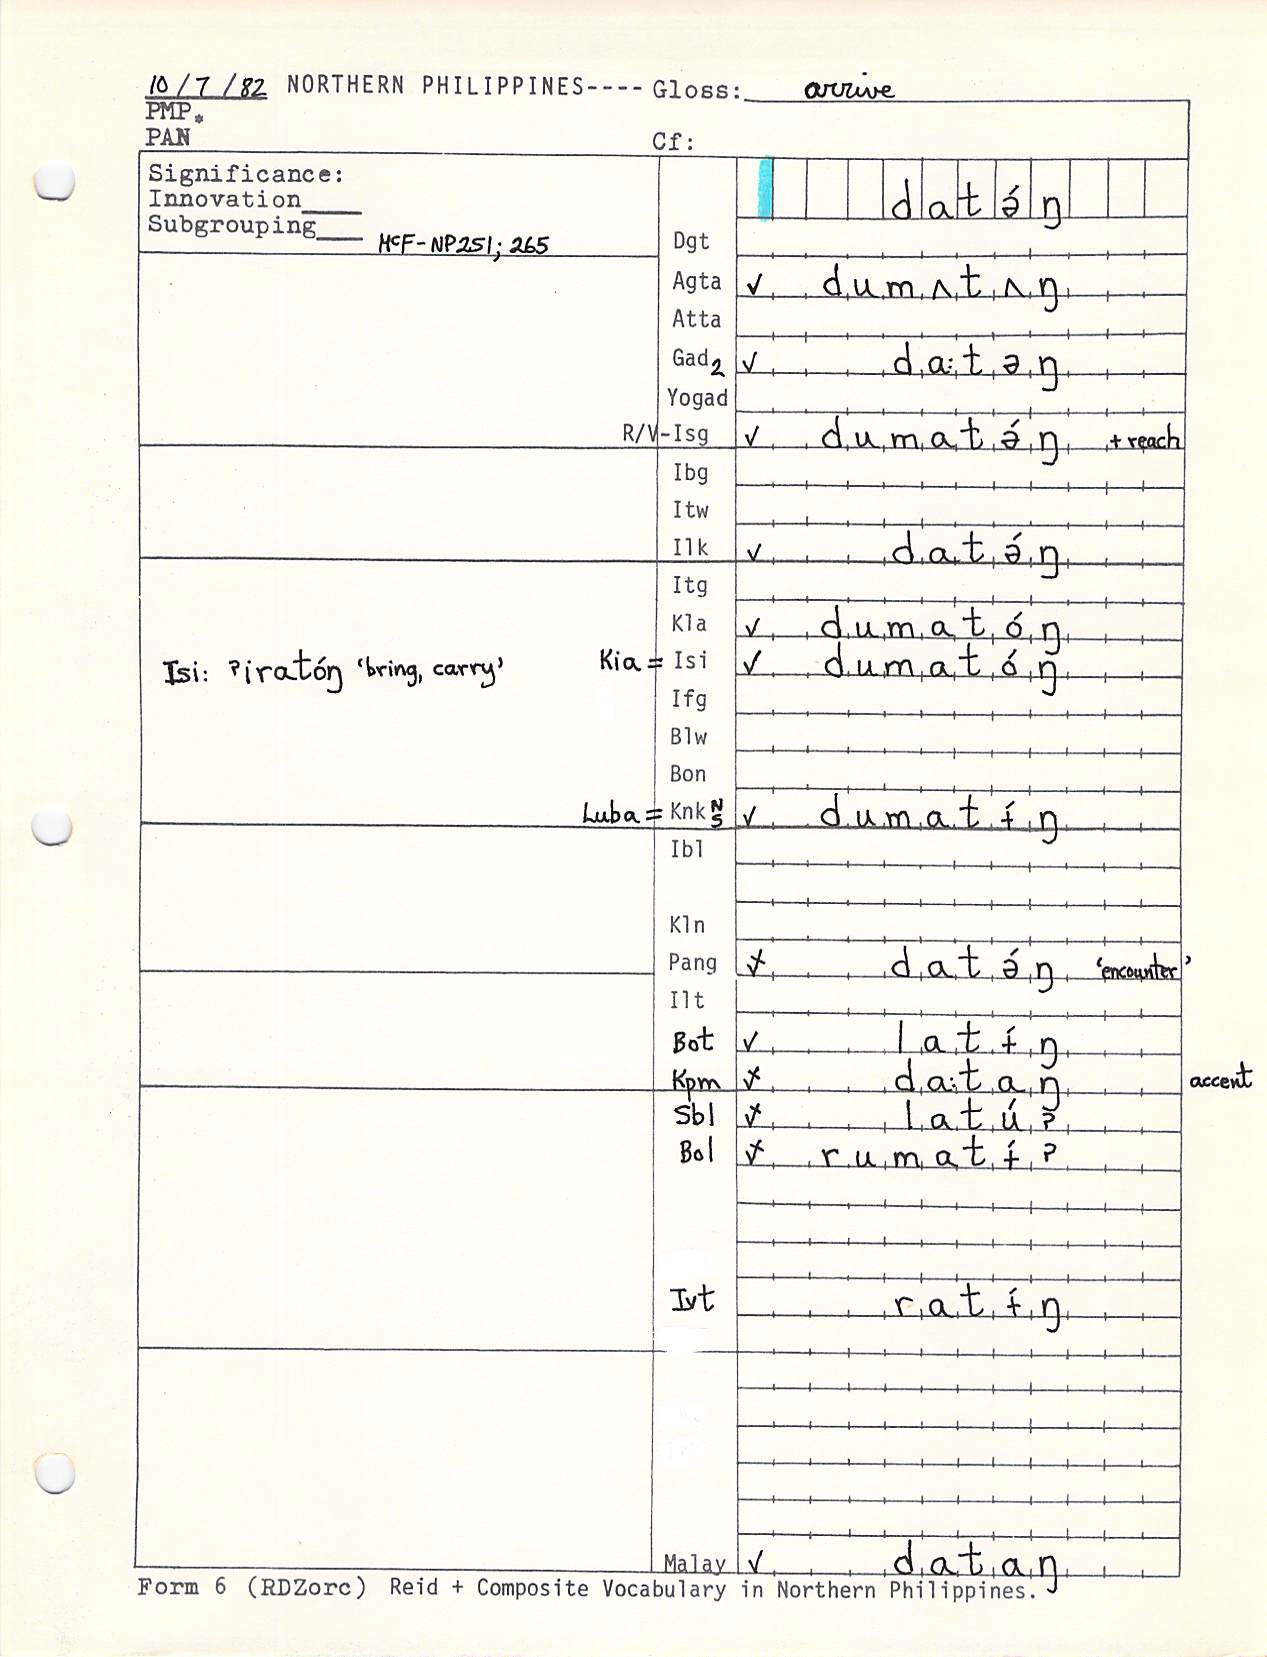 10/7/82 NORTHERN PHILIPPINES---- Gloss: arrive
PMP*
PAN Cf:
Significance:
Innovation____
Subgrouping____ McF-NP251; 265
datə́ŋ
Dgt
Agta ✓ dumʌtʌŋ
Atta
Gad2 ✓ da:təŋ
Yogad
R/V-Isg ✓ dumatə́ŋ + reach
Ibg
Itw
Ilk ✓ datə́ŋ
Itg
Kla ✓ dumatóŋ
Isi: ʔiratóŋ ‘bring, carry’ Kia = Isi ✓ dumatóŋ
Ifg
Blw
Bon
Luba = Knk N S ✓ dumatɨ́ŋ
Ibl
Kln
Pang ✓ datə́ŋ ‘encounter’
Ilt
Bot ✓ latɨ́ŋ
Kpm ✓ da:taŋ accent
Sbl ✓ latúʔ
Bol ✓ rumatɨ́ʔ
Ivt ratɨ́ŋ
Malay ✓ dataŋ
Form 6 (RDZorc) Reid + Composite Vocabulary in Northern Philippines.